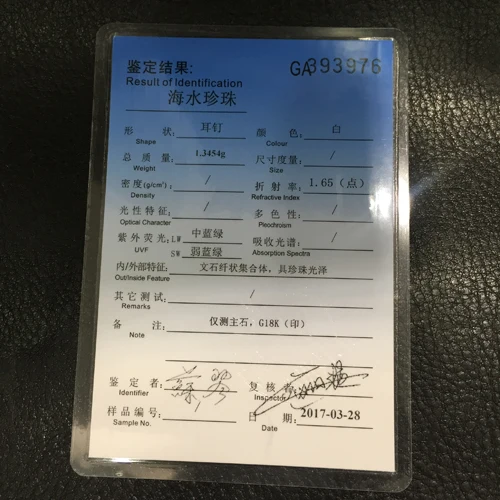 鉴定结果: GA393976
Result of Identification
海水珍珠
形状: 耳钉 颜色: 白
Shape Colour
总质量: 1.3454g 尺寸度量: /
Weight Size
密度(g/cm³): / 折射率: 1.65（点）
Density Refractive Index
光性特征: / 多色性: /
Optical Character Pleochroism
紫外荧光: LW 中蓝绿 吸收光谱: /
UVF SW 弱蓝绿 Absorption Spectra
内/外部特征: 文石纤状集合体，具珍珠光泽
Out/Inside Feature
其它测试: /
Remarks
备注: 仅测主石，G18K（印）
Note
鉴定者: 复核者:
Identifier Inspector
样品编号: 日期: 2017-03-28
Sample No. Date